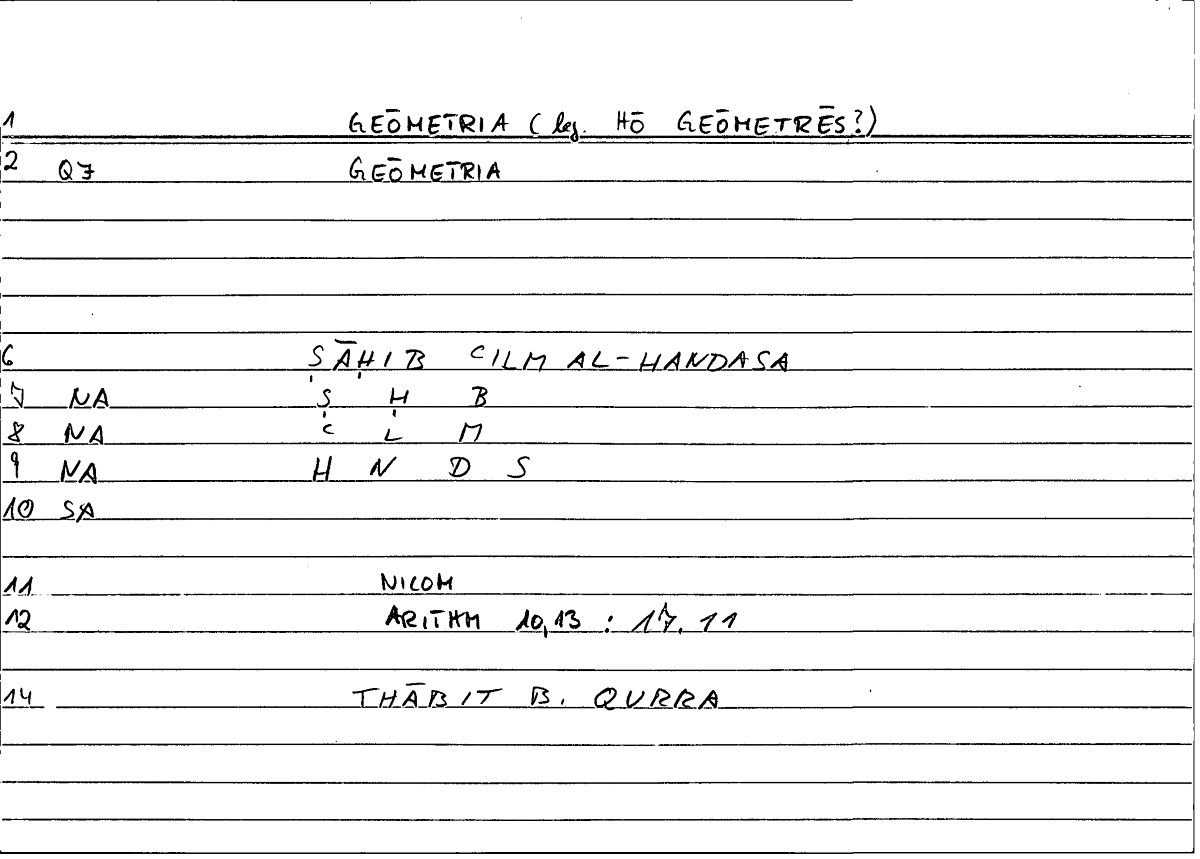 1 GEŌMETRIA (leg. HŌ GEŌMETRĒS?)
2 Q7 GEŌMETRIA
6 ṢĀḤIB CILM AL-HANDASA
7 NA Ṣ Ḥ B
8 NA C L M
9 NA H N D S
10 SA
11 NICOM
12 ARITHM 10,13 : 17.11
14 THĀBIT B. QURRA